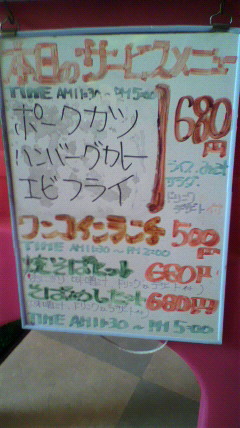 本日のサービスメニュー
TIME AM11:30~PM5:00
ポークカツ
ハンバーグカレー
エビフライ
680円
ライス、みそ汁
サラダ
ドリンク
デザート付
ワンコインランチ 500円
TIME AM11:30~PM2:00
焼そばセット 680円
そばめしセット 680円
TIME AM11:30~PM5:00